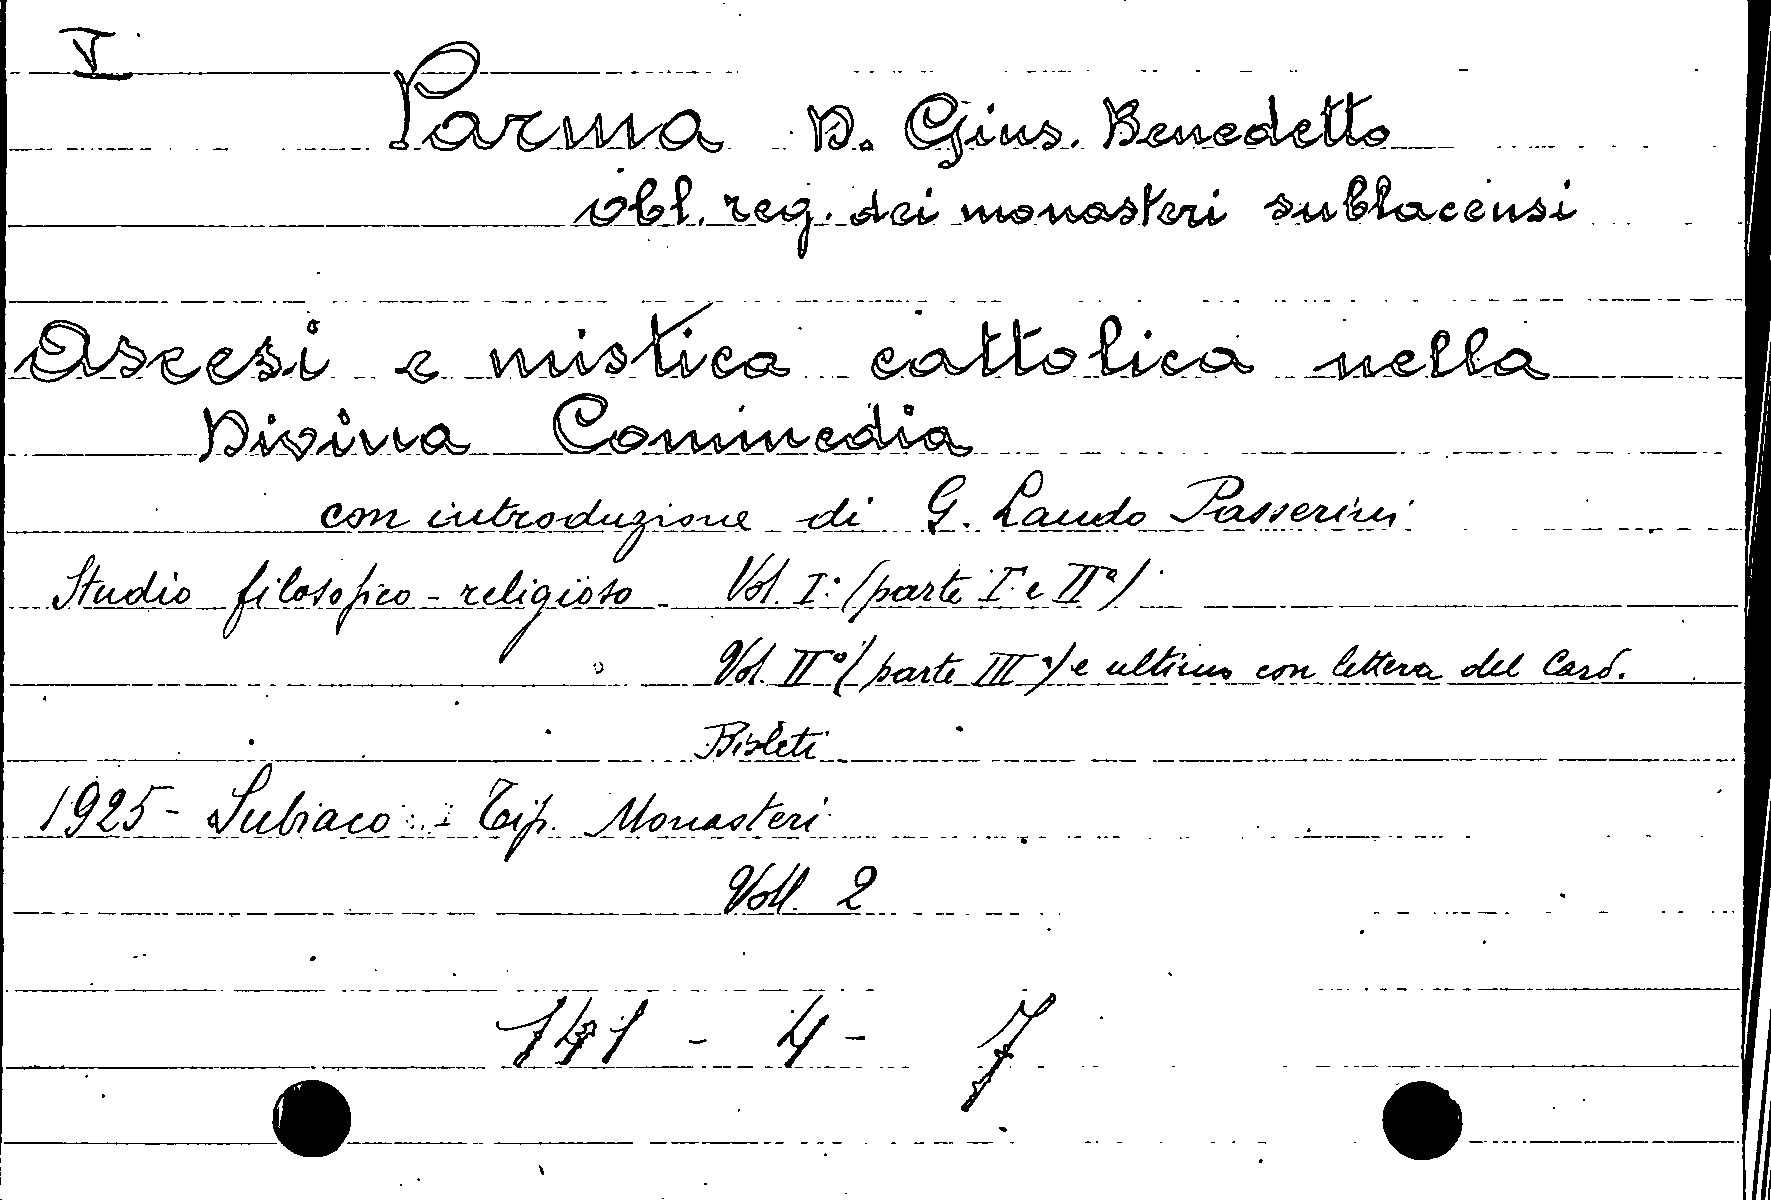 V
Parma D. Gius. Benedetto
obl. reg. dei monasteri sublacensi
Ascesi e mistica cattolica nella
Divina Commedia
con introduzione di G. Lando Passerini
Studio filosofico-religioso - Vol. I° (parte I e IIª)
Vol. II° (parte IIIª) e ultimo con lettera del Card.
Bisleti
1925 - Subiaco - Tip. Monasteri
Voll. 2
141 - 4 - 7